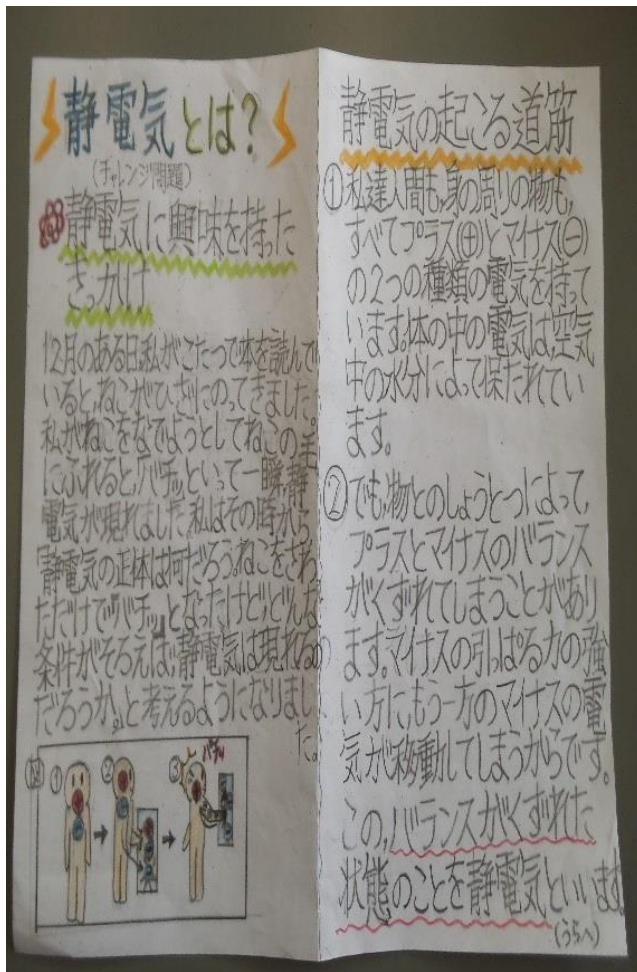 静電気とは?
(チャレンジ問題)
静電気に興味を持った
きっかけ
12月のある日、私がこたつで本を読んで
いると、ねこがひざにのってきました。
私がねこをなでようとしてねこの毛
にふれると、「バチッ」といって一瞬、静
電気が現れました。私はその時から
「静電気の正体は何だろう。ねこをさわっ
ただけで『バチッ』となったけど、どんな
条件がそろえば、静電気は現れるの
だろうか。」と考えるようになりまし
た。
図
① ② ③
バチッ
静電気の起こる道筋
①私達人間も、身の周りの物も、
すべてプラス(+)とマイナス(−)
の2つの種類の電気を持って
います。体の中の電気は、空気
中の水分によって保たれてい
ます。
②でも、物とのしょうとつによって、
プラスとマイナスのバランス
がくずれてしまうことがあり
ます。マイナスの引っぱる力の強
い方に、もう一方のマイナスの電
気が移動してしまうからです。
この、バランスがくずれた
状態のことを静電気といいます。
(うらへ)